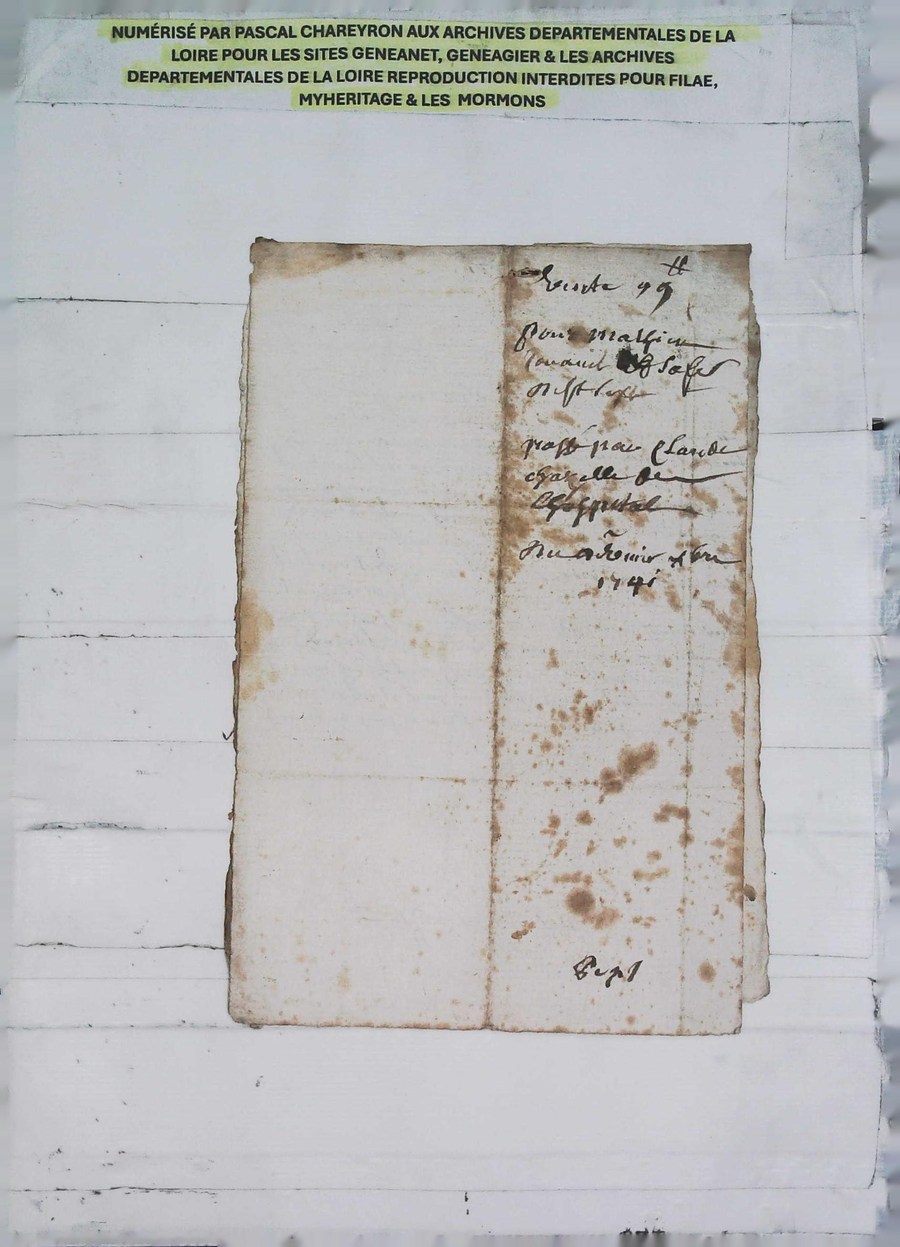 NUMÉRISÉ PAR PASCAL CHAREYRON AUX ARCHIVES DEPARTEMENTALES DE LA
LOIRE POUR LES SITES GENEANET, GENEAGIER & LES ARCHIVES
DEPARTEMENTALES DE LA LOIRE REPRODUCTION INTERDITES POUR FILAE,
MYHERITAGE & LES MORMONS
Vente 99 ᵗᵗ
pour mathieu
passé par Claude
chazelle de
Lhospital
Du xbre
1741